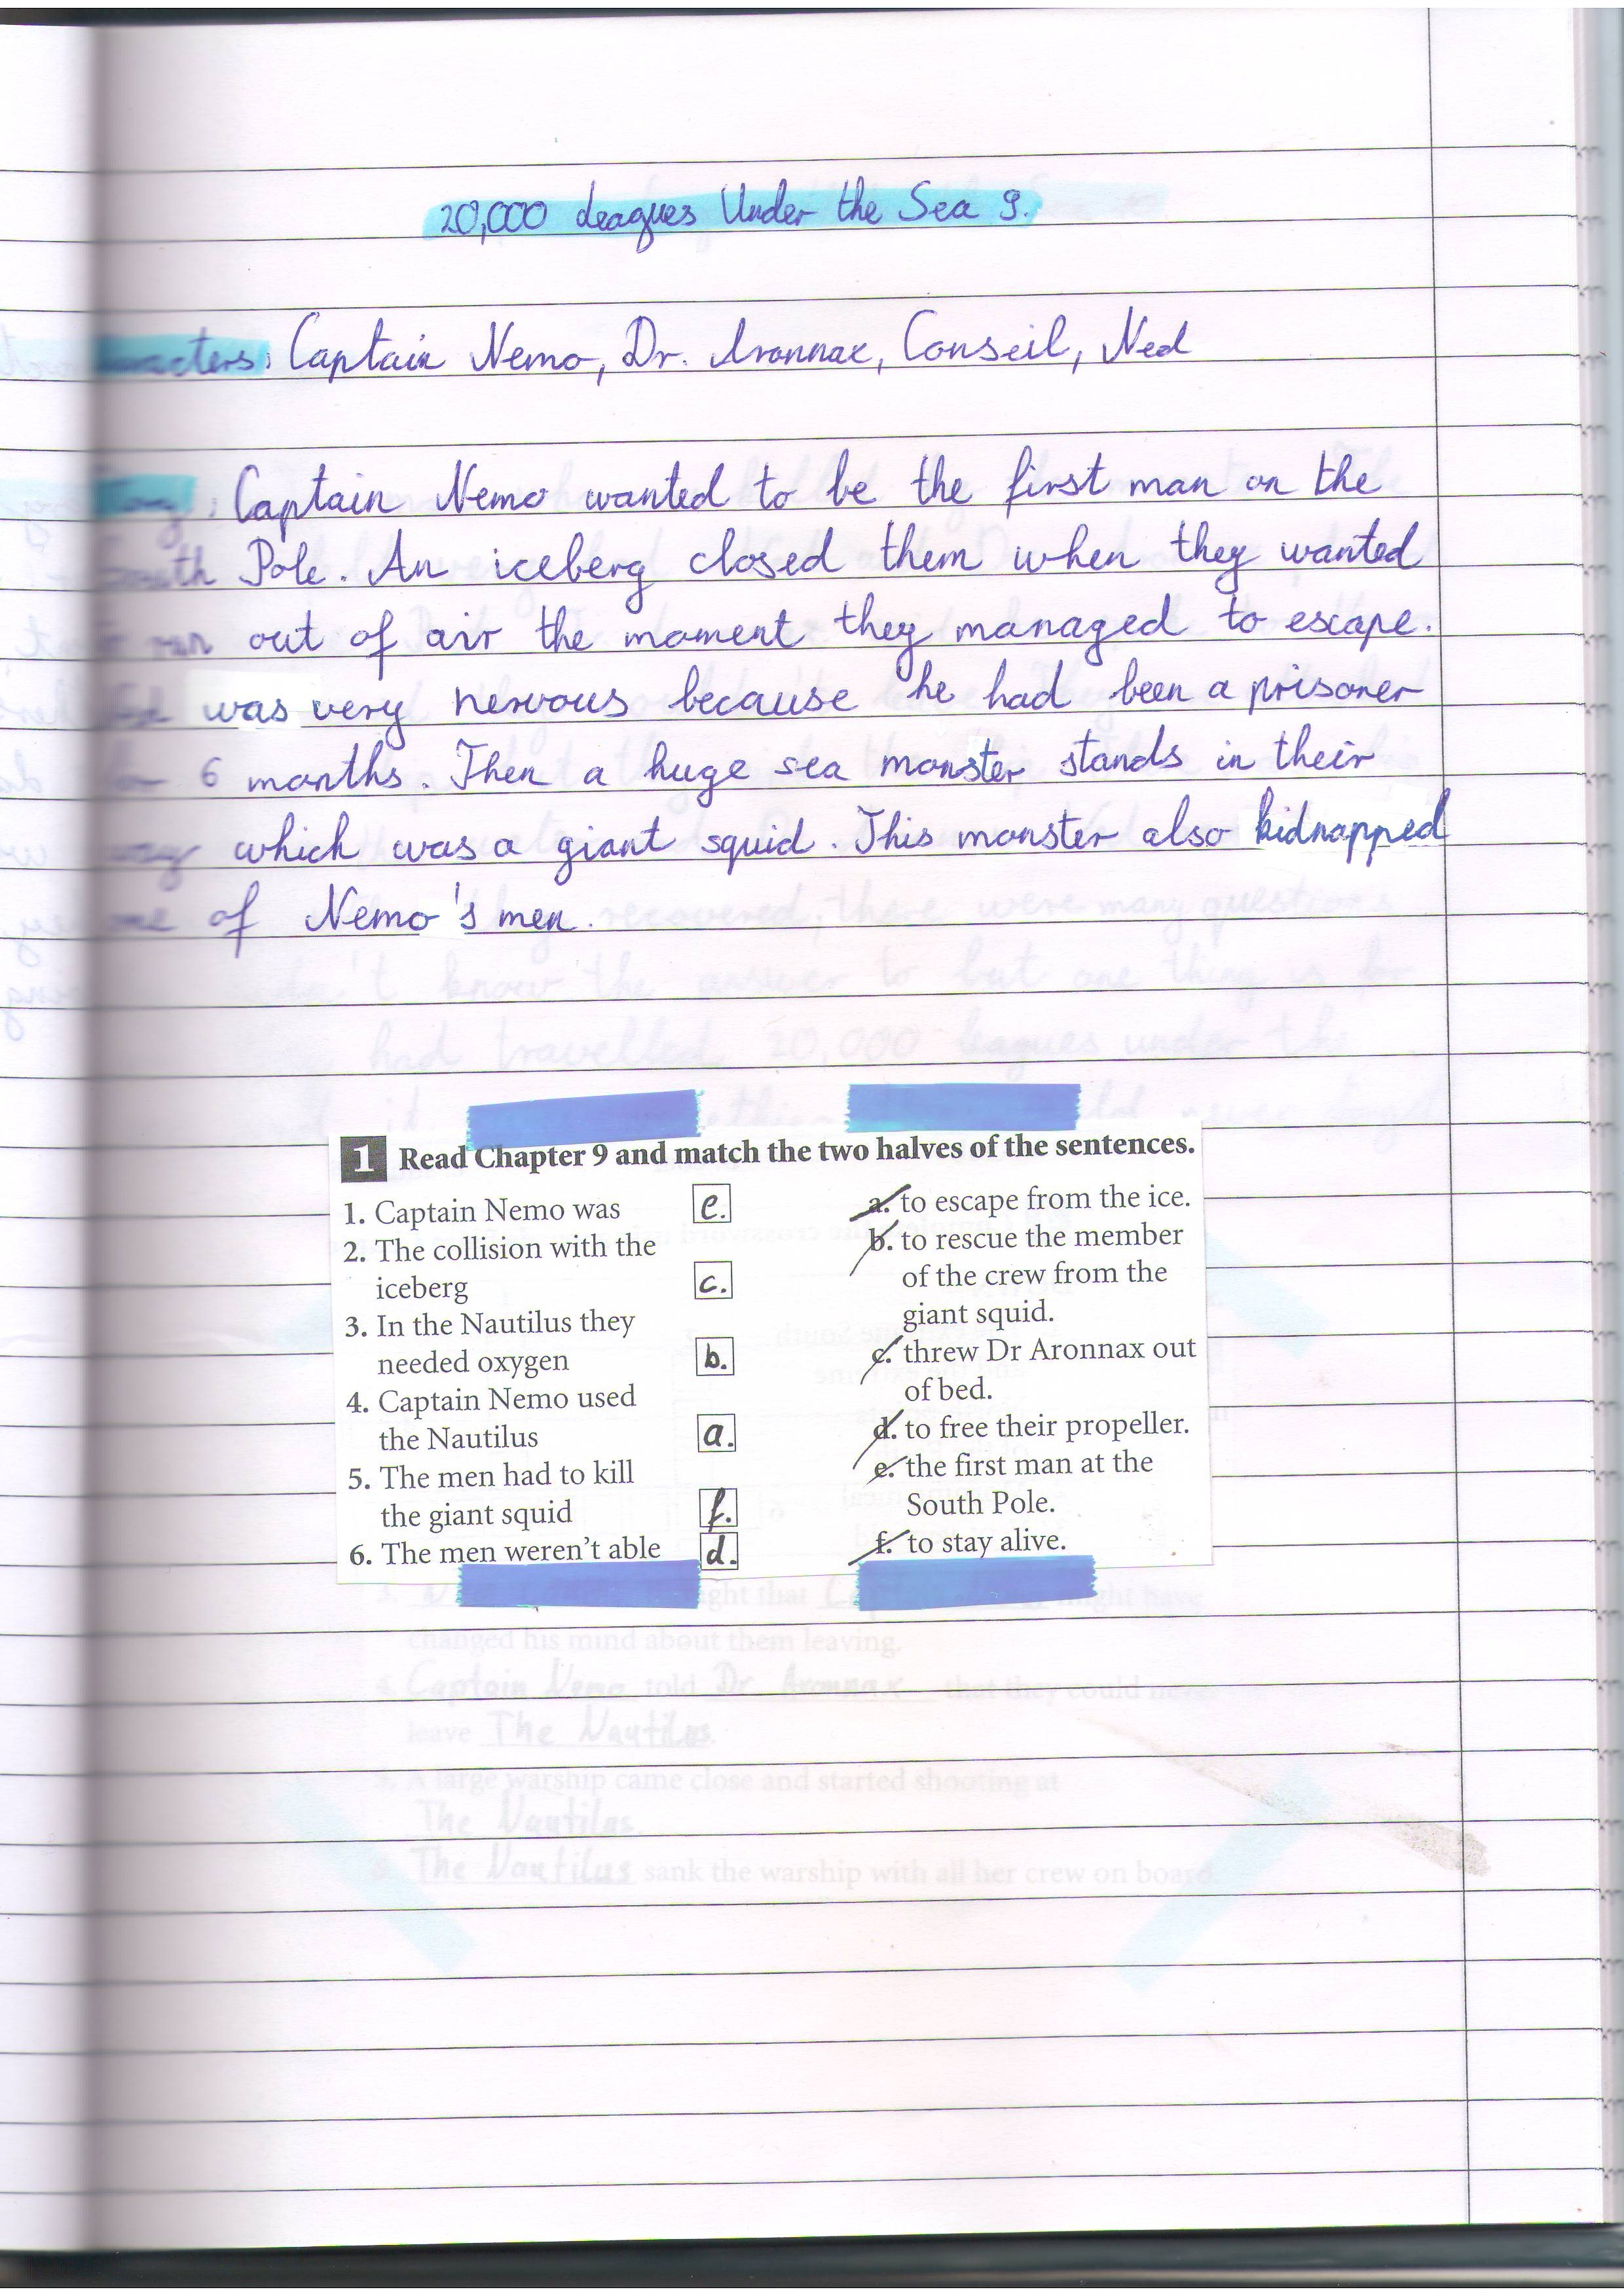 20,000 Leagues Under the Sea 9.
Characters: Captain Nemo, Dr. Aronnax, Conseil, Ned
Story: Captain Nemo wanted to be the first man on the
South Pole. An iceberg closed them when they wanted
to run out of air the moment they managed to escape.
Ned was very nervous because he had been a prisoner
for 6 months. Then a huge sea monster stands in their
way which was a giant squid. This monster also kidnapped
one of Nemo's men.
1 Read Chapter 9 and match the two halves of the sentences.
1. Captain Nemo was e.
2. The collision with the
iceberg c.
3. In the Nautilus they
needed oxygen b.
4. Captain Nemo used
the Nautilus a.
5. The men had to kill
the giant squid f.
6. The men weren't able d.
a. to escape from the ice.
b. to rescue the member
of the crew from the
giant squid.
c. threw Dr Aronnax out
of bed.
d. to free their propeller.
e. the first man at the
South Pole.
f. to stay alive.